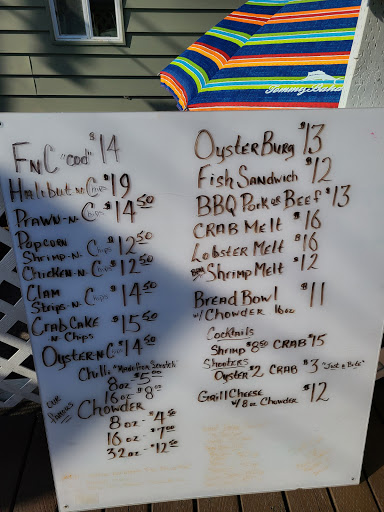 Tommy Bahama
FNC "cod" $14
Halibut-n-Chips $19
Prawn-n-Chips $14 50
Popcorn
Shrimp-n-Chips $12 50
Chicken-n-Chips $12 50
Clam
Strips-n-Chips $14 50
Crab Cake
n Chips $15 50
Oyster-n-Chips $14 50
Chili "Made From Scratch"
8oz $5 00
16oz $8 00
Our Famous Chowder
8oz - $4 50
16oz - $7 00
32oz - $12 50
Oyster Burg $13
Fish Sandwich $12
BBQ Pork or Beef $13
Crab Melt $16
Lobster Melt $16
Bay Shrimp Melt $12
Bread Bowl $11
w/ Chowder 16oz
Cocktails
Shrimp $8 50 Crab $15
Shooters
Oyster $2 Crab $3 "Just a Bite"
Grill Cheese $12
w/ 8oz Chowder